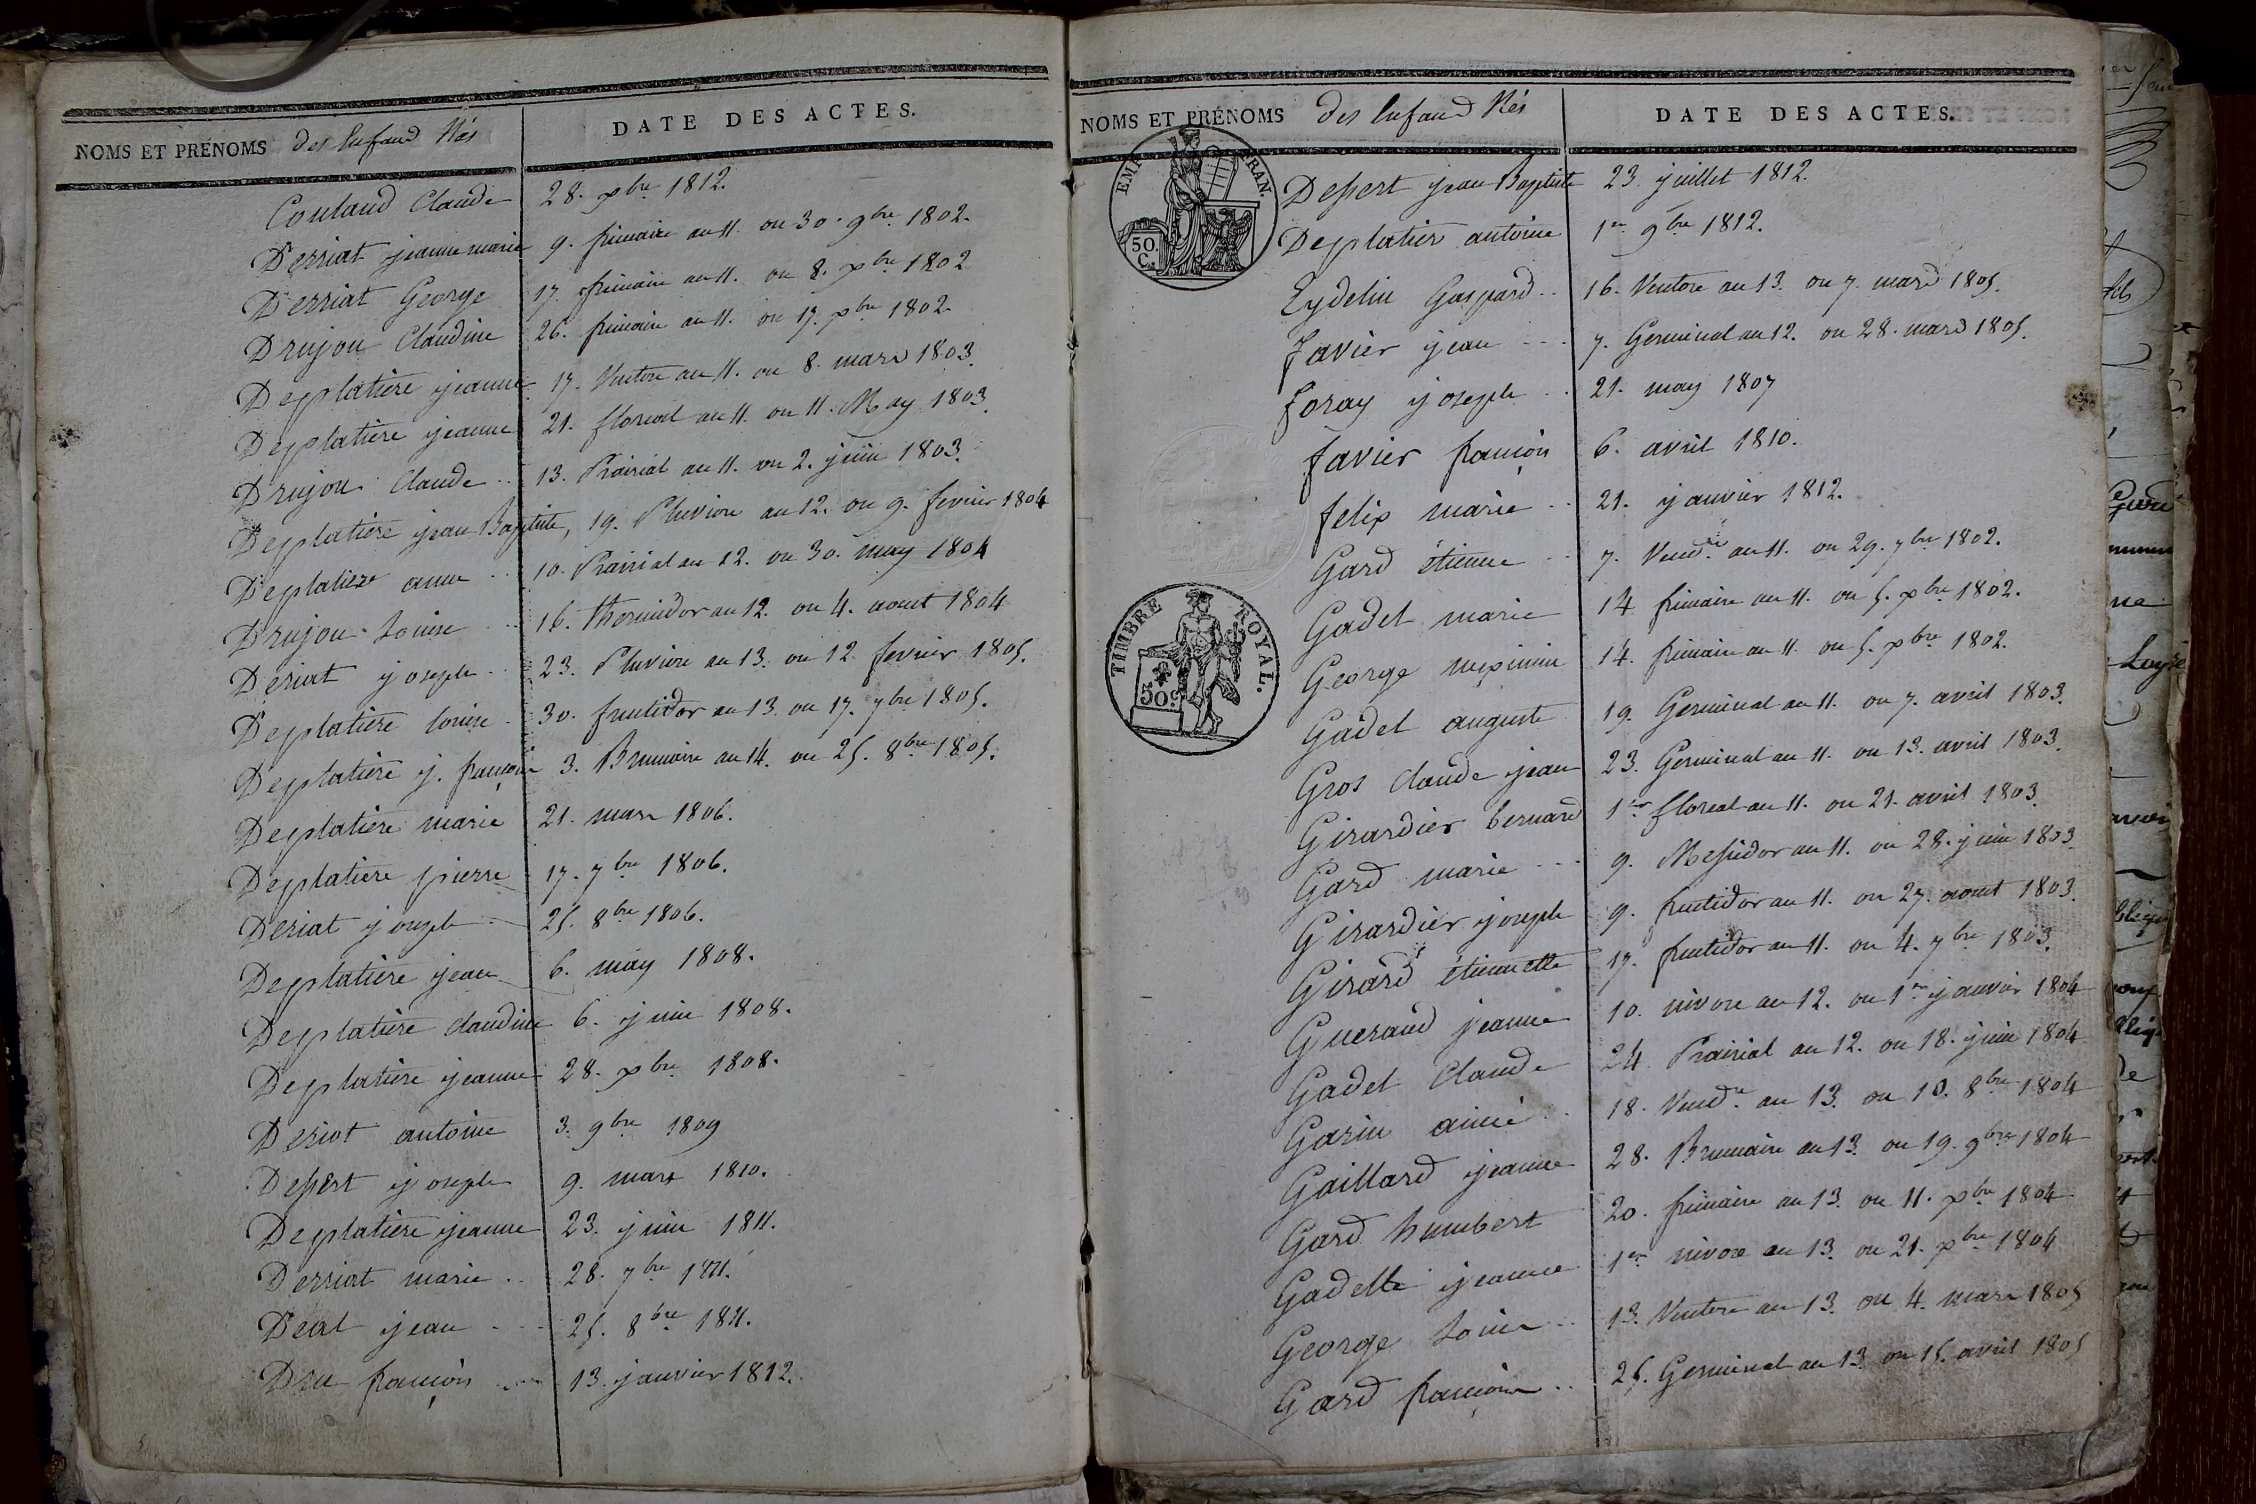 NOMS ET PRÉNOMS des Enfans Nés DATE DES ACTES.
Coulaud Claude 28. xbre 1812.
Derriat jeanne marie 9. frimaire an 11. ou 30. 9bre 1802.
Derriat George 17. frimaire an 11. ou 8. xbre 1802
Drujon Claudine 26. frimaire an 11. ou 17. xbre 1802.
Deplatière jeanne 17. Ventose an 11. ou 8. mars 1803.
Deplatière jeanne 21. floreal an 11. ou 11. May 1803.
Drujon Claude .. 13. Prairial an 11. ou 2. juin 1803.
Deplatière jean Baptiste, 19. Pluviose an 12. ou 9. fevrier 1804
Deplatière anne .. 10. Prairial an 12. ou 30. may 1804
Drujon Louise .. 16. thermidor an 12. ou 4. aout 1804
Deriat joseph .. 23. Pluviose an 13. ou 12. fevrier 1805.
Deplatière louise . 30. fructidor an 13. ou 17. 7bre 1805.
Deplatière j. françois 3. Brumaire an 14. ou 25. 8bre 1805.
Deplatière marie 21. mars 1806.
Deplatière pierre 17. 7bre 1806.
Deriat joseph . 25. 8bre 1806.
Deplatière jean 6. may 1808.
Deplatière claudine 6. juin 1808.
Deplatière jeanne 28. xbre 1808.
Deriot antoine 3. 9bre 1809
Depert joseph 9. mars 1810.
Deplatière jeanne 23. juin 1811.
Derriat marie .. 28. 7bre 1811.
Déat jean ... 25. 8bre 1811.
Dru françois ... 13. janvier 1812.
NOMS ET PRÉNOMS des Enfans Nés DATE DES ACTES.
EMP. FRAN.
50. C.
Depert jean Baptiste 23. juillet 1812.
Deplatier antoine 1er 9bre 1812.
Eydelin Gaspard .. 16. Ventose an 13. ou 7. mars 1805.
favier jean ... 7. Germinal an 12. ou 28. mars 1805.
foray joseph .. 21. may 1807
favier françois 6. avril 1810.
felix marie .. 21. janvier 1812.
Gard étienne .. 7. Vendre an 11. ou 29. 7bre 1802.
Gadet marie 14 frimaire an 11. ou 5. xbre 1802.
TIMBRE ROYAL.
50c
George mepimin 14. frimaire an 11. ou 5. xbre 1802.
Gadet auguste 19. Germinal an 11. ou 7. avril 1803.
Gros Claude jean 23. Germinal an 11. ou 13. avril 1803.
Girardier bernard 1er floreal an 11. ou 21. avril 1803.
Gard marie ... 9. Messidor an 11. ou 28. juin 1803.
Girardier joseph 9. fructidor an 11. ou 27. aout 1803.
Girard étiennette 17. fructidor an 11. ou 4. 7bre 1803.
Gueraud jeanne 10. nivose an 12. ou 1er janvier 1804
Gadet Claude 24 Prairial an 12. ou 18. juin 1804
Garin aimé .. 18. Vendre an 13. ou 10. 8bre 1804
Gaillard jeanne 28. Brumaire an 13. ou 19. 9bre 1804
Gard humbert 20. frimaire an 13. ou 11. xbre 1804
Gadette jeanne 1er nivose an 13. ou 21. xbre 1804
George Louise .. 13. Ventose an 13. ou 4. mars 1805
Gard françoise .. 25. Germinal an 13. ou 15. avril 1805